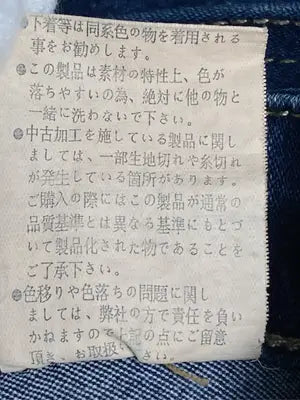 ●下着等は同系色の物を着用される
事をお勧めします。
●この製品は素材の特性上、色が
落ちやすいの為、絶対に他の物と
一緒に洗わないで下さい。
●中古加工を施している製品に関し
ましては、一部生地切れや糸切れ
が発生している箇所があります。
ご購入の際にはこの製品が通常の
品質基準とは異なる基準にもとづ
いて製品化された物であることを
ご了承下さい。
●色移りや色落ちの問題に関し
ましては、弊社の方で責任を負い
かねますので上記の点にご留意
頂き、お取扱い下さい。